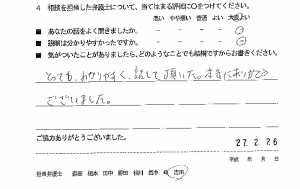 4 相談を担当した弁護士について、当てはまる評価に○をつけてください。
悪い やや悪い 普通 よい 大変よい
■ あなたの話をよく聞きましたか。
■ 説明は分かりやすかったですか。
■ 気がついたことがありましたら、どのようなことでも結構ですからお書きください。
とっても、わかりやすく、話して頂いた。本当にありがとう
ございました。
ご協力ありがとうございました。
27. 2. 26
平成 年 月 日
担当弁護士